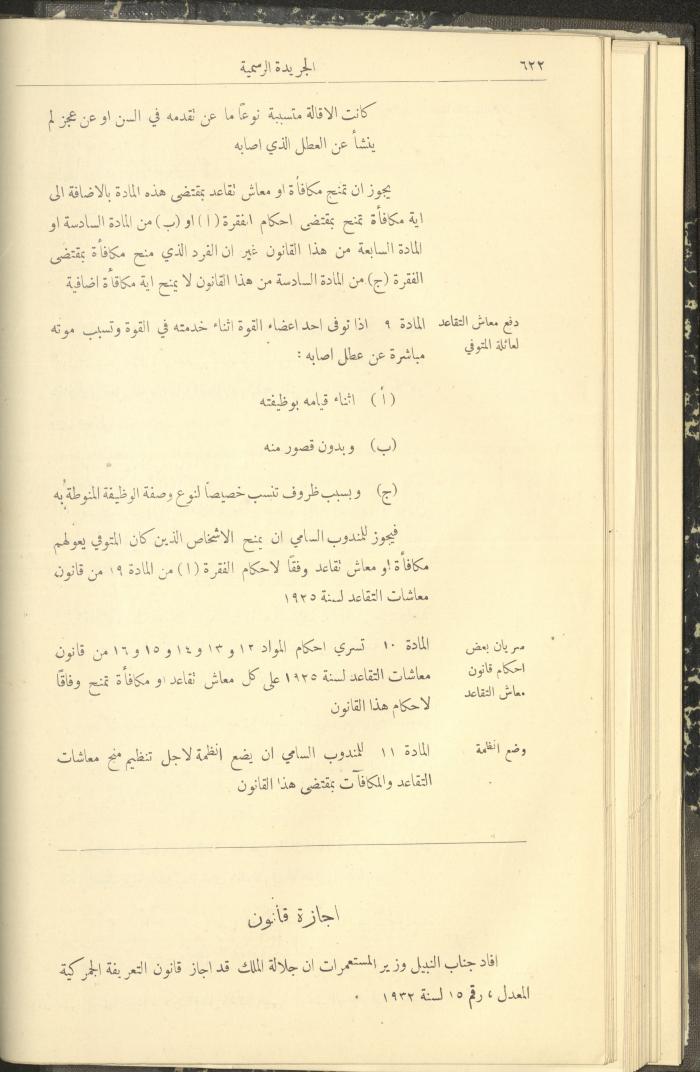 ٦٢٢
الجريدة الرسمية
كانت الاقالة متسببة نوعًا ما عن تقدمه في السن او عن عجز لم
ينشأ عن العطل الذي اصابه
يجوز ان تمنح مكافأة او معاش تقاعد بمقتضى هذه المادة بالاضافة الى
اية مكافأة تمنح بمقتضى احكام الفقرة (ا) او (ب) من المادة السادسة او
المادة السابعة من هذا القانون غير ان الفرد الذي منح مكافأة بمقتضى
الفقرة (ج) من المادة السادسة من هذا القانون لا يمنح اية مكافأة اضافية
دفع معاش التقاعد
لعائلة المتوفي
المادة ٩ اذا توفى احد اعضاء القوة اثناء خدمته في القوة وتسبب موته
مباشرة عن عطل اصابه :
(أ) اثناء قيامه بوظيفته
(ب) وبدون قصور منه
(ج) وبسبب ظروف تنسب خصيصاً لنوع وصفة الوظيفة المنوطة به
فيجوز للمندوب السامي ان يمنح الاشخاص الذين كان المتوفي يعولهم
مكافأة او معاش تقاعد وفقًا لاحكام الفقرة (ا) من المادة ١٩ من قانون
معاشات التقاعد لسنة ١٩٢٥
سريان بعض
احكام قانون
معاش التقاعد
المادة ١٠ تسري احكام المواد ١٢ و ١٣ و ١٤ و ١٥ و ١٦ من قانون
معاشات التقاعد لسنة ١٩٢٥ على كل معاش تقاعد او مكافأة تمنح وفاقًا
لاحكام هذا القانون
وضع انظمة
المادة ١١ للمندوب السامي ان يضع انظمة لاجل تنظيم منح معاشات
التقاعد والمكافآت بمقتضى هذا القانون
اجازة قانون
افاد جناب النبيل وزير المستعمرات ان جلالة الملك قد اجاز قانون التعريفة الجمركية
المعدل ، رقم ١٥ لسنة ١٩٣٢